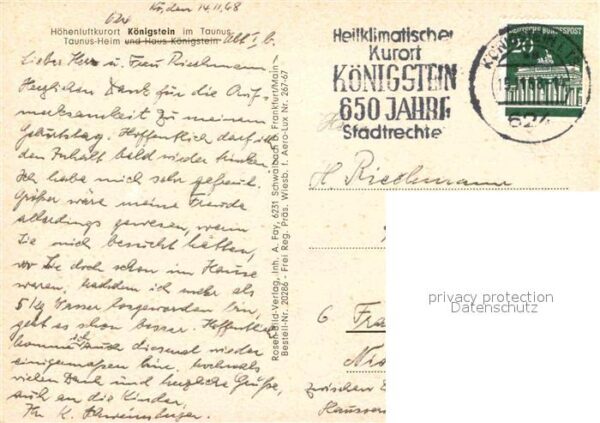 Kö, den 14.11.68
624
Höhenluftkurort Königstein im Taunus
Taunus-Heim und Haus Königstein Abt. I b.
Lieber Herr u. Frau Riechmann
Herzlichen Dank für die Auf-
merksamkeit zu meinem
Geburtstag. Hoffentlich darf ich
den Inhalt bald wieder trinken
Ich habe mich sehr gefreut.
Größer wäre meine Freude
allerdings gewesen, wenn
Sie mich besucht hätten,
wo Sie doch schon im Hause
waren, nachdem ich mehr als
5 kg Wasser losgeworden bin,
geht es schon besser. Hoffentlich
komme ich auch diesmal wieder
einigermaßen hin, nochmals
vielen Dank und herzliche Grüße,
auch an die Kinder.
Ihr K.
Rosen-Bild-Verlag, Inh. A. Fay, 6231 Schwalbach b. Frankfurt/Main
Bestell-Nr. 20286 - Frei Reg. Präs. Wiesb. f. Aero-Lux Nr. 267-67
Heilklimatischer
Kurort
KÖNIGSTEIN
650 JAHRE
Stadtrechte
624
DEUTSCHE BUNDESPOST
20
H. Riechmann
privacy protection
Datenschutz
6 Fra
zwischen